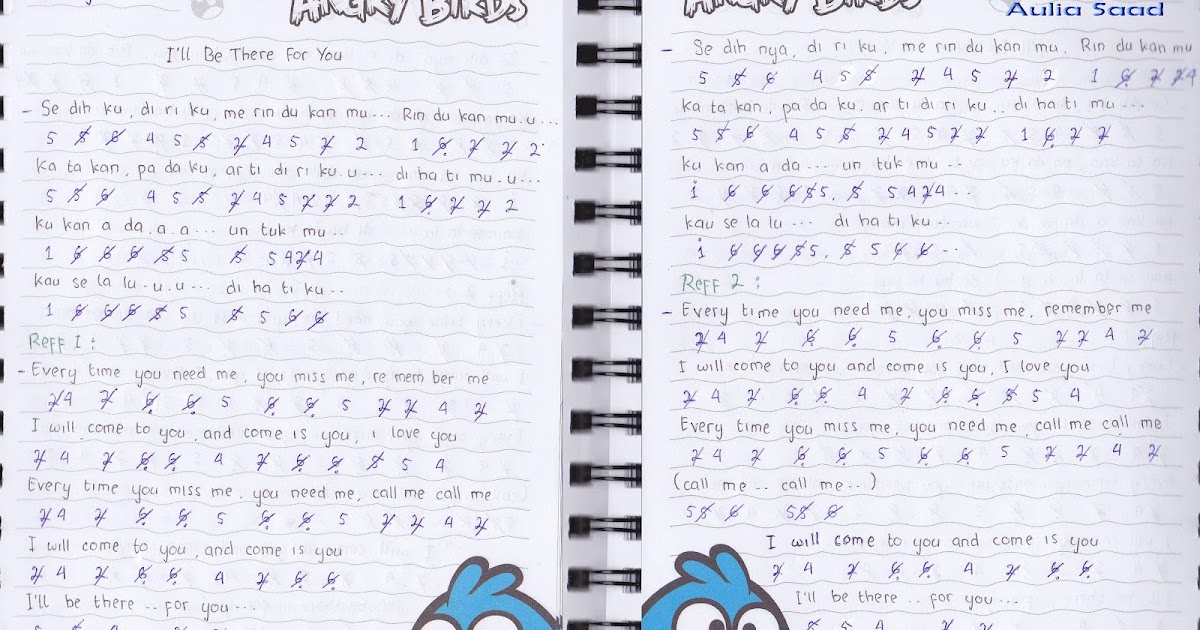 ANGRY BIRDS
I'll Be There For You
- Se dih ku, di ri ku, me rin du kan mu... Rin du kan mu.u...
5 5̸ 6̸ 4 5 5̸ 2̸ 4 5 2̸ 2 1 6̸̣ 2̸ 2̸ 2
ka ta kan, pa da ku, ar ti di ri ku.u... di ha ti mu.u...
5 5̸ 6̸ 4 5 5̸ 2̸ 4 5 2̸ 2̸ 2 1 6̸̣ 2̸ 2̸ 2
ku kan a da.a.a... un tuk mu..
1 6̸ 6̸ 6̸ 5̸ 5 5̸ 5 4 2̸ 4
kau se la lu.u.u... di ha ti ku..
1 6̸ 6̸ 6̸ 5̸ 5 5̸ 5 6̸ 6̸
Reff 1 :
- Every time you need me, you miss me, re mem ber me
2̸ 4 2̸ 6̸̣ 6̸̣ 5 6̸̣ 6̸̣ 5 2̸ 2̸ 4 2̸
I will come to you, and come is you, i love you
2̸ 4 2̸ 6̸̣ 6̸̣ 4 2̸ 6̸̣ 6̸̣ 5̸ 5 4
Every time you miss me, you need me, call me call me
2̸ 4 2̸ 6̸̣ 6̸̣ 5 6̸̣ 6̸̣ 5 2̸ 2̸ 4 2̸
I will come to you, and come is you
2̸ 4 2̸ 6̸̣ 6̸̣ 4 2̸ 6̸̣ 6̸̣
I'll be there .. for you...
ANGRY BIRDS
Aulia Saad
- Se dih nya, di ri ku, me rin du kan mu, Rin du kan mu
5 5̸ 6̸ 4 5 5̸ 2̸ 4 5 2̸ 2 1 6̸̣ 2̸ 2̸ 4
ka ta kan, pa da ku, ar ti di ri ku.. di ha ti mu...
5 5̸ 6̸ 4 5 5̸ 2̸ 4 5 2̸ 2̸ 1 6̸̣ 2̸ 2̸
ku kan a da... un tuk mu..
1̇ 6̸ 6̸ 6̸ 5̸ 5. 5̸ 5 4 2̸ 4..
kau se la lu... di ha ti ku...
1̇ 6̸ 6̸ 6̸ 5̸ 5. 5̸ 5 6̸ 6̸..
Reff 2 :
- Every time you need me, you miss me, remember me
2̸ 4 2̸ 6̸̣ 6̸̣ 5 6̸̣ 6̸̣ 5 2̸ 2̸ 4 2̸
I will come to you and come is you, I love you
2̸ 4 2̸ 6̸̣ 6̸̣ 4 2̸ 6̸̣ 6̸̣ 5̸ 5 4
Every time you miss me, you need me, call me call me
2̸ 4 2̸ 6̸̣ 6̸̣ 5 6̸̣ 6̸̣ 5 2̸ 2̸ 4 2̸
(call me .. call me..)
5 5̸ 6̸ 5 5̸ 6̸
I will come to you and come is you
2̸ 4 2̸ 6̸̣ 6̸̣ 4 2̸ 6̸̣ 6̸̣
I'll be there .. for you...